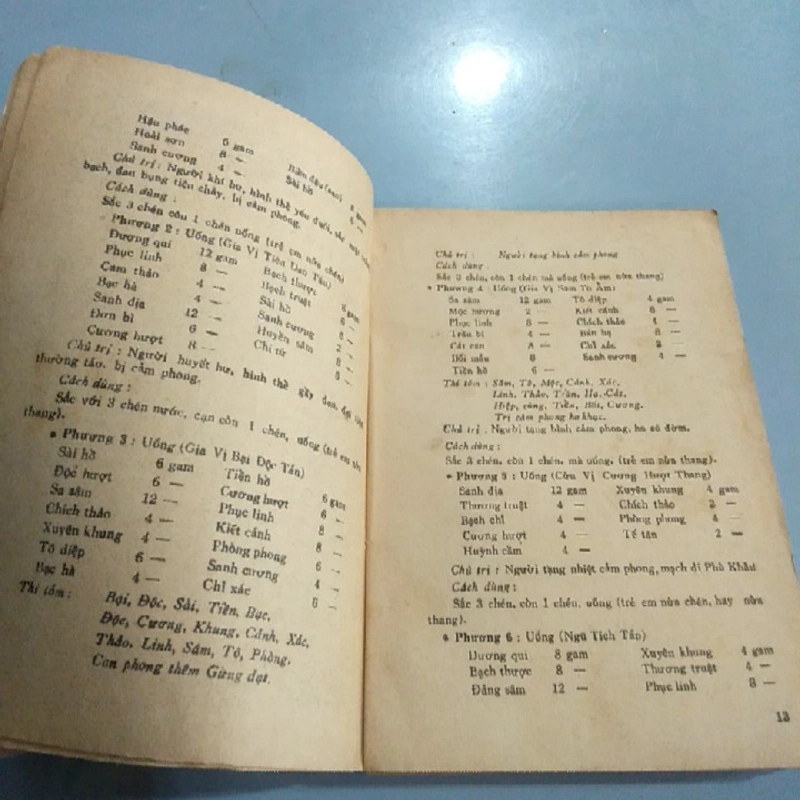 Hậu phác 6 gam Biển đậu (sao) 8 gam
Hoài sơn 8 — Sài hồ 6 —
Sanh cương 4 —
Chủ trị : Người khí hư, hình thể yếu đuối, sắc mặt
bạch, đau bụng tiêu chảy, bị cảm phong.
Cách dùng :
Sắc 3 chén còn 1 chén uống (trẻ em nửa chén)
Phương 2 : Uống (Gia Vị Tiêu Dao Tán)
Đương qui 12 gam Bạch thược 8 gam
Phục linh 8 — Bạch truật
Cam thảo 4 — Sài hồ
Bạc hà 4 — Sanh cương
Sanh địa 12 — Huyền sâm
Đơn bì 6 — Chi tử
Cương hượt 8 —
Chủ trị : Người huyết hư, hình thể gầy đen, đại tiện
thường táo, bị cảm phong.
Cách dùng :
Sắc với 3 chén nước, cạn còn 1 chén, uống (trẻ em nửa
thang).
• Phương 3 : Uống (Gia Vị Bại Độc Tán)
Sài hồ 6 gam Tiền hồ 6 gam
Độc hượt 6 — Cương hượt 6 —
Sa sâm 12 — Phục linh 8 —
Chích thảo 4 — Kiết cánh 8 —
Xuyên khung 4 — Phòng phong 6 —
Tô diệp 6 — Sanh cương 4 —
Bạc hà 4 — Chỉ xác 6 —
Thi tóm : Bại, Độc, Sài, Tiền, Bạc,
Độc, Cương, Khung, Cánh, Xác,
Thảo, Linh, Sâm, Tô, Phòng,
Can phong thêm Gừng dạt.
Chủ trị : Người tạng bình cảm phong
Cách dùng :
Sắc 3 chén, còn 1 chén mà uống (trẻ em nửa thang)
• Phương 4 : Uống (Gia Vị Sâm Tô Ẩm)
Sa sâm 12 gam Tô diệp 4 gam
Mộc hương 2 — Kiết cánh 8 —
Phục linh 8 — Chích thảo 4 —
Trần bì 4 — Bán hạ 8 —
Cát căn 8 — Chỉ xác
Bối mẫu 8 Sanh cương 4 —
Tiền hồ 6 —
Thi tóm : Sâm, Tô, Mộc, Cánh, Xác,
Linh, Thảo, Trần, Hạ, Cát,
Hiệp, cùng, Tiền, Bối, Cương.
Trị cảm phong ho khục.
Chủ trị : Người tạng bình cảm phong, ho có đờm.
Cách dùng :
Sắc 3 chén, còn 1 chén, mà uống, (trẻ em nửa thang).
• Phương 5 : Uống (Cửu Vị Cương Hượt Thang)
Sanh địa 12 gam Xuyên khung 4 gam
Thương truật 4 — Chích thảo 2 —
Bạch chỉ 4 — Phòng phong 4 —
Cương hượt 4 — Tế tân 2 —
Huỳnh cầm 4 —
Chủ trị : Người tạng nhiệt cảm phong, mạch đi Phù Khẩn
Cách dùng :
Sắc 3 chén, còn 1 chén, uống (trẻ em nửa chén, hay nửa
thang).
• Phương 6 : Uống (Ngũ Tích Tán)
Đương qui 8 gam Xuyên khung 4 gam
Bạch thược 8 — Thương truật 4 —
Đảng sâm 12 — Phục linh 8 —
13